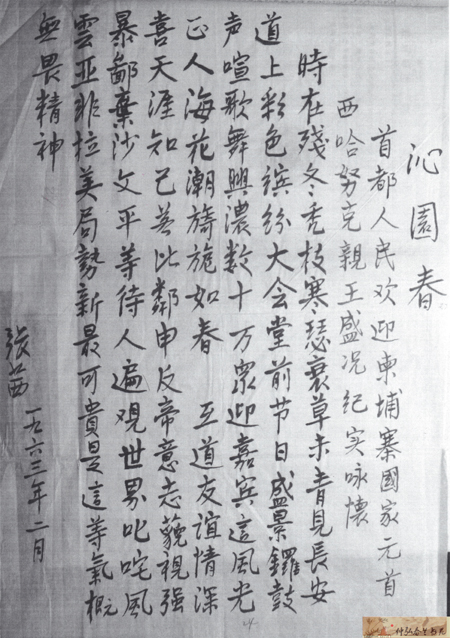 沁園春
首都人民欢迎柬埔寨國家元首
西哈努克親王盛况纪实咏懷
時在殘冬秃枝寒瑟衰草未青見長安
道上彩色缤纷大会堂前节日盛景鑼鼓
声喧歌舞興濃数十万衆迎嘉宾這風光
正人海花潮旖旎如春 互道友谊情深
喜天涯知己若比鄰申反帝意志藐視强
暴鄙棄沙文平等待人遍观世界叱咤風
雲亚非拉美局勢新最可貴是這等氣概
無畏精神
張茜 一九六三年二月